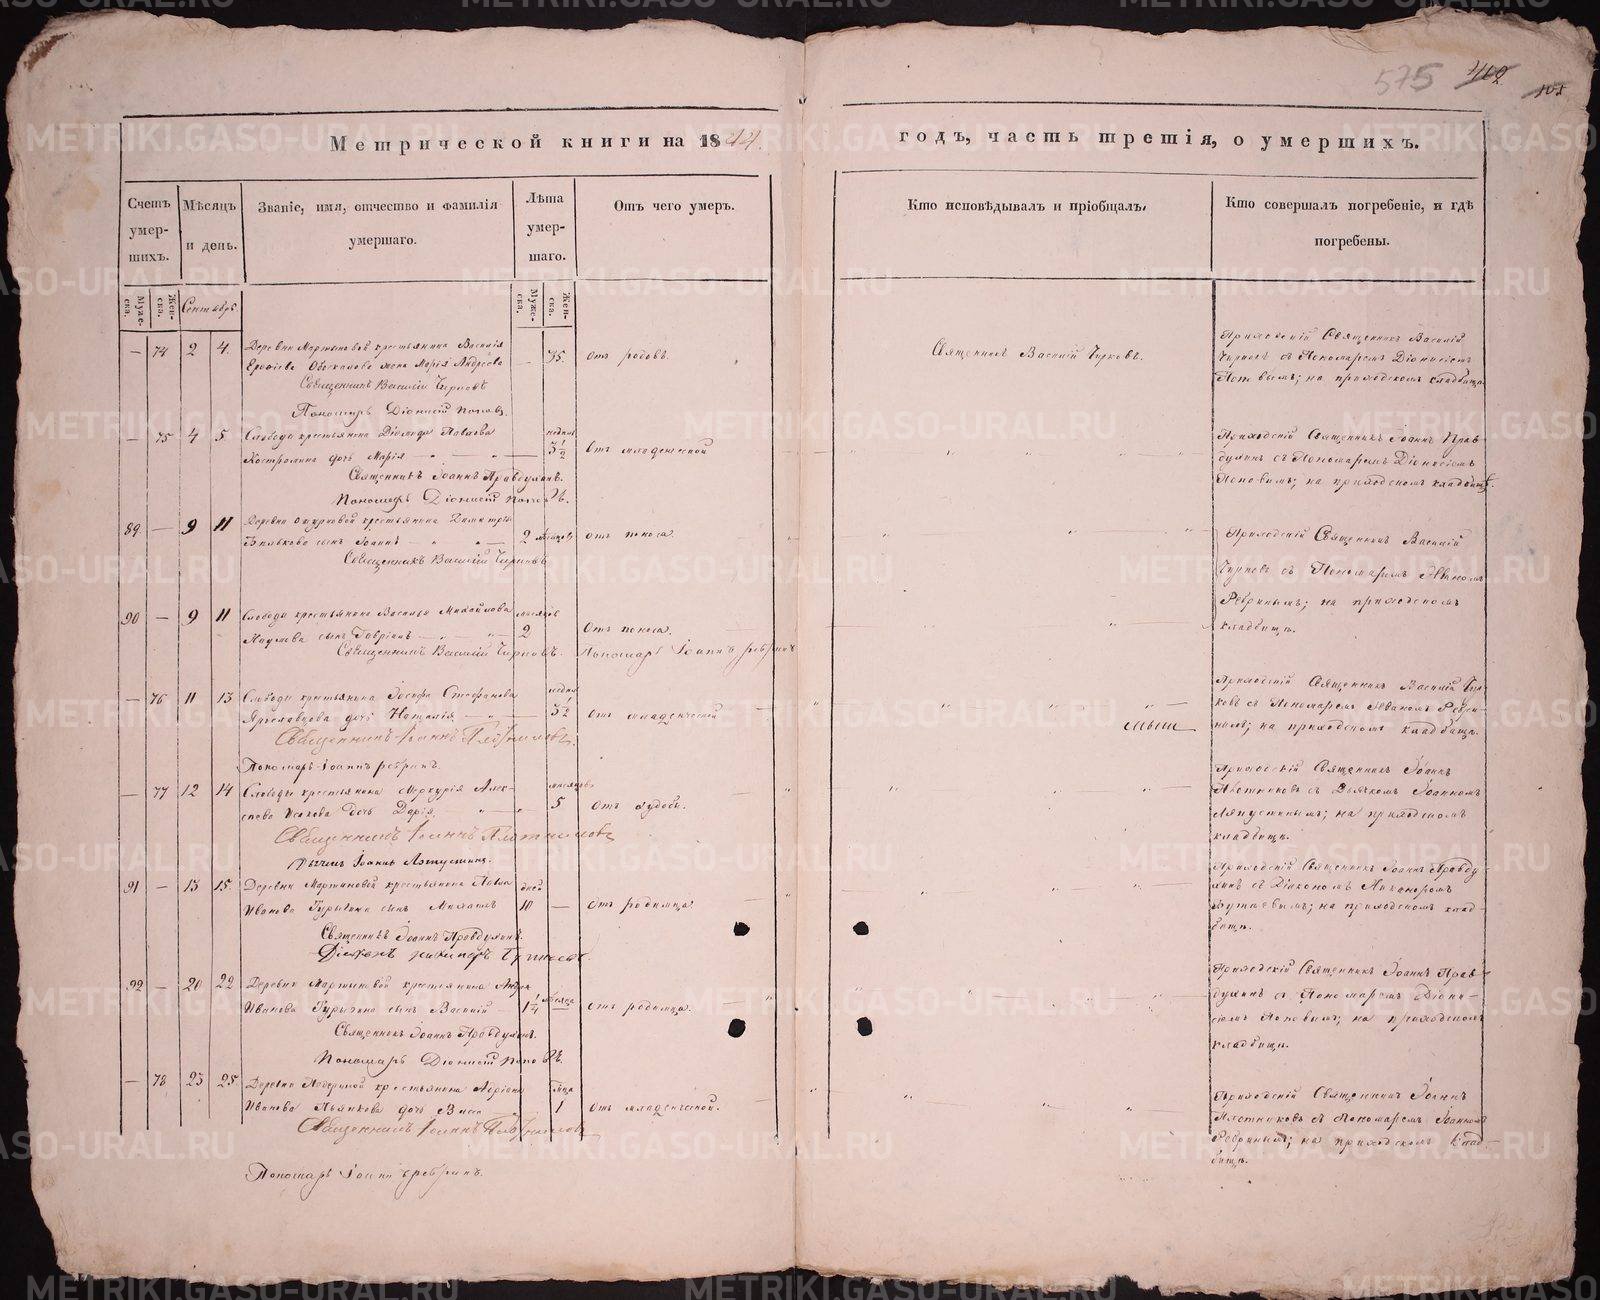 575 402 101
Метрической книги на 1844. годъ, часть третія, о умершихъ.
Счетъ умер-шихъ.
Мѣсяцъ и день.
Званіе, имя, отчество и фамилія умершаго.
Лѣта умер-шаго.
Отъ чего умеръ.
Кто исповѣдывалъ и пріобщалъ,
Кто совершалъ погребеніе, и гдѣ погребены.
Муже-ска. Жен-ска. Сентябрь. Муже-ска. Жен-ска.
— 74 2 4. Деревни Мартыновой крестьянина Василія
жена Марія Андреева — 35. Отъ родовъ.
Священникъ Василій Чирковъ.
Приходскій Священникъ Василій
Чирковъ съ Пономаремъ Діонисіемъ
Поповымъ; на приходскомъ кладбищѣ.
Священникъ Василій Чирковъ
Пономарь Діонисій Поповъ.
— 75 4 5. Слободы крестьянина Павлова
дочь Марія — недель 3 1/2 Отъ младенческой
Приходскій Священникъ Іоаннъ Прав-
духинъ съ Пономаремъ Діонисіемъ
Поповымъ; на приходскомъ кладбищѣ.
Священникъ Іоаннъ Правдухинъ.
Пономарь Діонисій Поповъ.
89. — 9 11 Деревни крестьянина Димитрія
сынъ Іоаннъ — 2 месяцовъ Отъ поноса.
Приходскій Священникъ Василій
Чирковъ съ Пономаремъ Иваномъ
Ребринымъ; на приходскомъ
кладбищѣ.
Священникъ Василій Чирковъ
90 — 9 11 Слободы крестьянина Василья Михайлова
Наумова сынъ Гавріилъ — месяцовъ 2 Отъ поноса.
Священникъ Василій Чирковъ. Пономарь Іоаннъ Ребринъ
— 76 11 13 Слободы крестьянина Іосифа Стефанова
Ярославцова дочь Наталія — недель 3 1/2 Отъ младенческой
Приходскій Священникъ Василій Чир-
ковъ съ Пономаремъ Иваномъ Ребри-
нымъ; на приходскомъ кладбищѣ.
Священникъ Іоаннъ Плотниковъ.
Пономарь Іоаннъ Ребринъ.
— 77 12 14 Слободы крестьянина Меркурія Алек-
сеева Исакова дочь Дарія, — месяцовъ 5 Отъ худобы.
Приходскій Священникъ Іоаннъ
Плотниковъ съ Дьячкомъ Іоанномъ
Ляпустинымъ; на приходскомъ
кладбищѣ.
Священникъ Іоаннъ Плотниковъ
Дьячекъ Іоаннъ Ляпустинъ.
91 — 13 15. Деревни Мартыновой крестьянина Павла
Иванова Гурычина сынъ Михаилъ дней 10 — Отъ родимца.
Приходскій Священникъ Іоаннъ Правду-
хинъ съ Діакономъ Никаноромъ
на приходскомъ клад-
бищѣ.
Священникъ Іоаннъ Правдухинъ.
92 — 20 22 Деревни Мартыновой крестьянина Андрея
Иванова Гурычина сынъ Василій 1 1/4 месяца — Отъ родимца.
Приходскій Священникъ Іоаннъ Прав-
духинъ съ Пономаремъ Діони-
сіемъ Поповымъ; на приходскомъ
кладбищѣ.
Священникъ Іоаннъ Правдухинъ.
Пономарь Діонисій Поповъ.
— 78 23 25. Деревни крестьянина Адріана
Иванова Пьянкова дочь Васса 1 Отъ младенческой.
Приходскій Священникъ Іоаннъ
Плотниковъ съ Пономаремъ Іоанномъ
Ребринымъ; на приходскомъ клад-
бищѣ.
Священникъ Іоаннъ Плотниковъ
Пономарь Іоаннъ Ребринъ.
METRIKI.GASO-URAL.RU